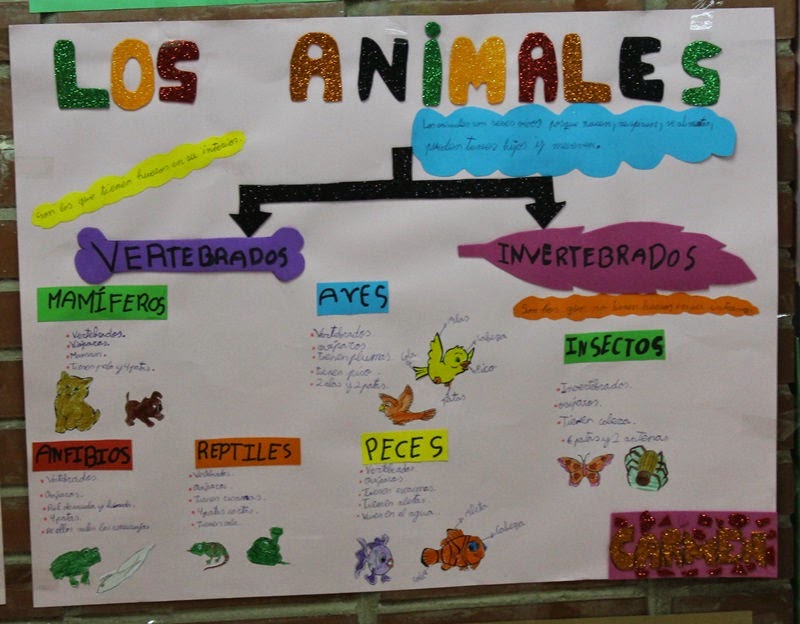 LOS ANIMALES
Los animales son seres vivos porque nacen, respiran, se alimentan,
pueden tener hijos y mueren.
Son los que tienen huesos en su interior.
VERTEBRADOS
INVERTEBRADOS
Son los que no tienen huesos en su interior.
MAMÍFEROS
Vertebrados.
Vivíparos.
Maman.
Tienen pelo y 4 patas.
AVES
Vertebrados
ovíparos
Tienen plumas.
tienen pico.
2 alas y 2 patas.
Alas
cabeza
Pico
patas
Cola
INSECTOS
Invertebrados.
ovíparos.
Tienen cabeza.
6 patas y 2 antenas
ANFIBIOS
Vertebrados
Ovíparos.
Piel desnuda y húmeda.
4 patas.
REPTILES
Vertebrados.
Ovíparos.
Tienen escamas.
4 patas cortas.
Tienen cola.
PECES
Vertebrados.
ovíparos
Tienen escamas.
Tienen aletas.
Viven en el agua.
Aleta
Cabeza
Cola
CARMELA